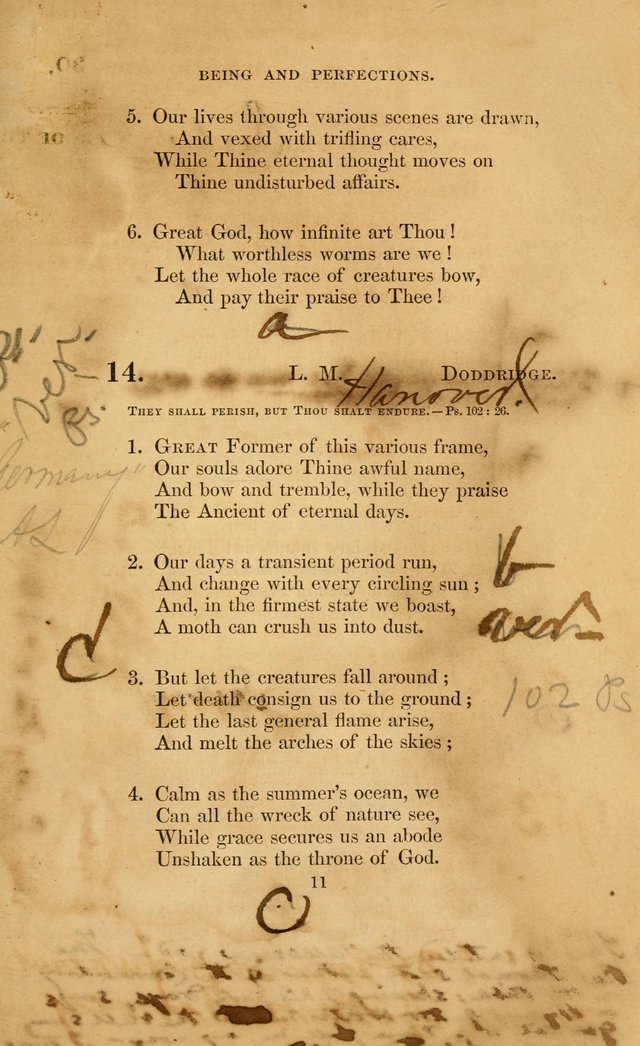 BEING AND PERFECTIONS.
5. Our lives through various scenes are drawn,
And vexed with trifling cares,
While Thine eternal thought moves on
Thine undisturbed affairs.
6. Great God, how infinite art Thou!
What worthless worms are we!
Let the whole race of creatures bow,
And pay their praise to Thee!
a
14. L. M. DODDRIDGE.
Hanover.
THEY SHALL PERISH, BUT THOU SHALT ENDURE.—Ps. 102: 26.
1. GREAT Former of this various frame,
Our souls adore Thine awful name,
And bow and tremble, while they praise
The Ancient of eternal days.
Germany"
2. Our days a transient period run,
And change with every circling sun;
And, in the firmest state we boast,
A moth can crush us into dust.
b
d
3. But let the creatures fall around;
Let death consign us to the ground;
Let the last general flame arise,
And melt the arches of the skies;
102 Ps
4. Calm as the summer's ocean, we
Can all the wreck of nature see,
While grace secures us an abode
Unshaken as the throne of God.
11
C